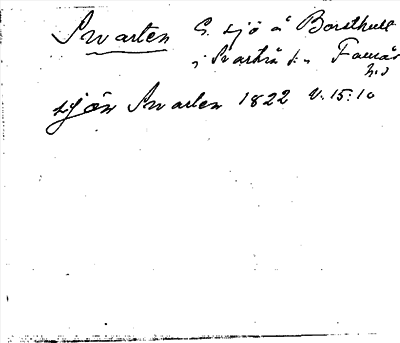 Svarten S. sjö å Borsthult
i Svartrå s:n Faurås
h:d
sjön Svarten 1822 V:15:10